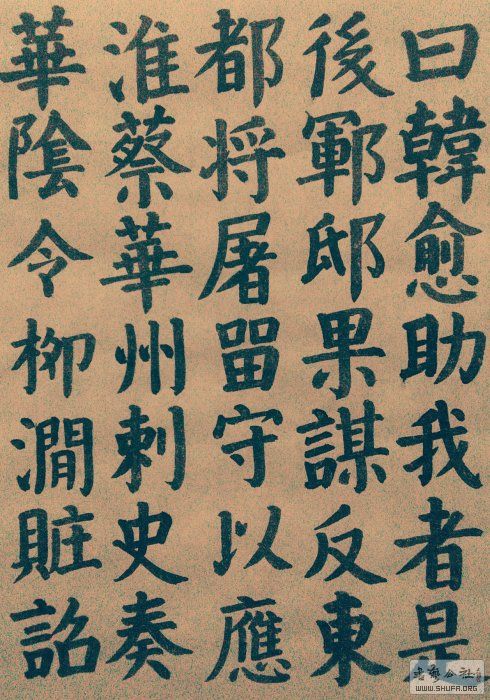 曰韓愈助我者是
後鄆邸果謀反東
都将屠留守以應
淮蔡華州刺史奏
華陰令柳澗賍詔
书艺公社
WWW.SHUFA.ORG